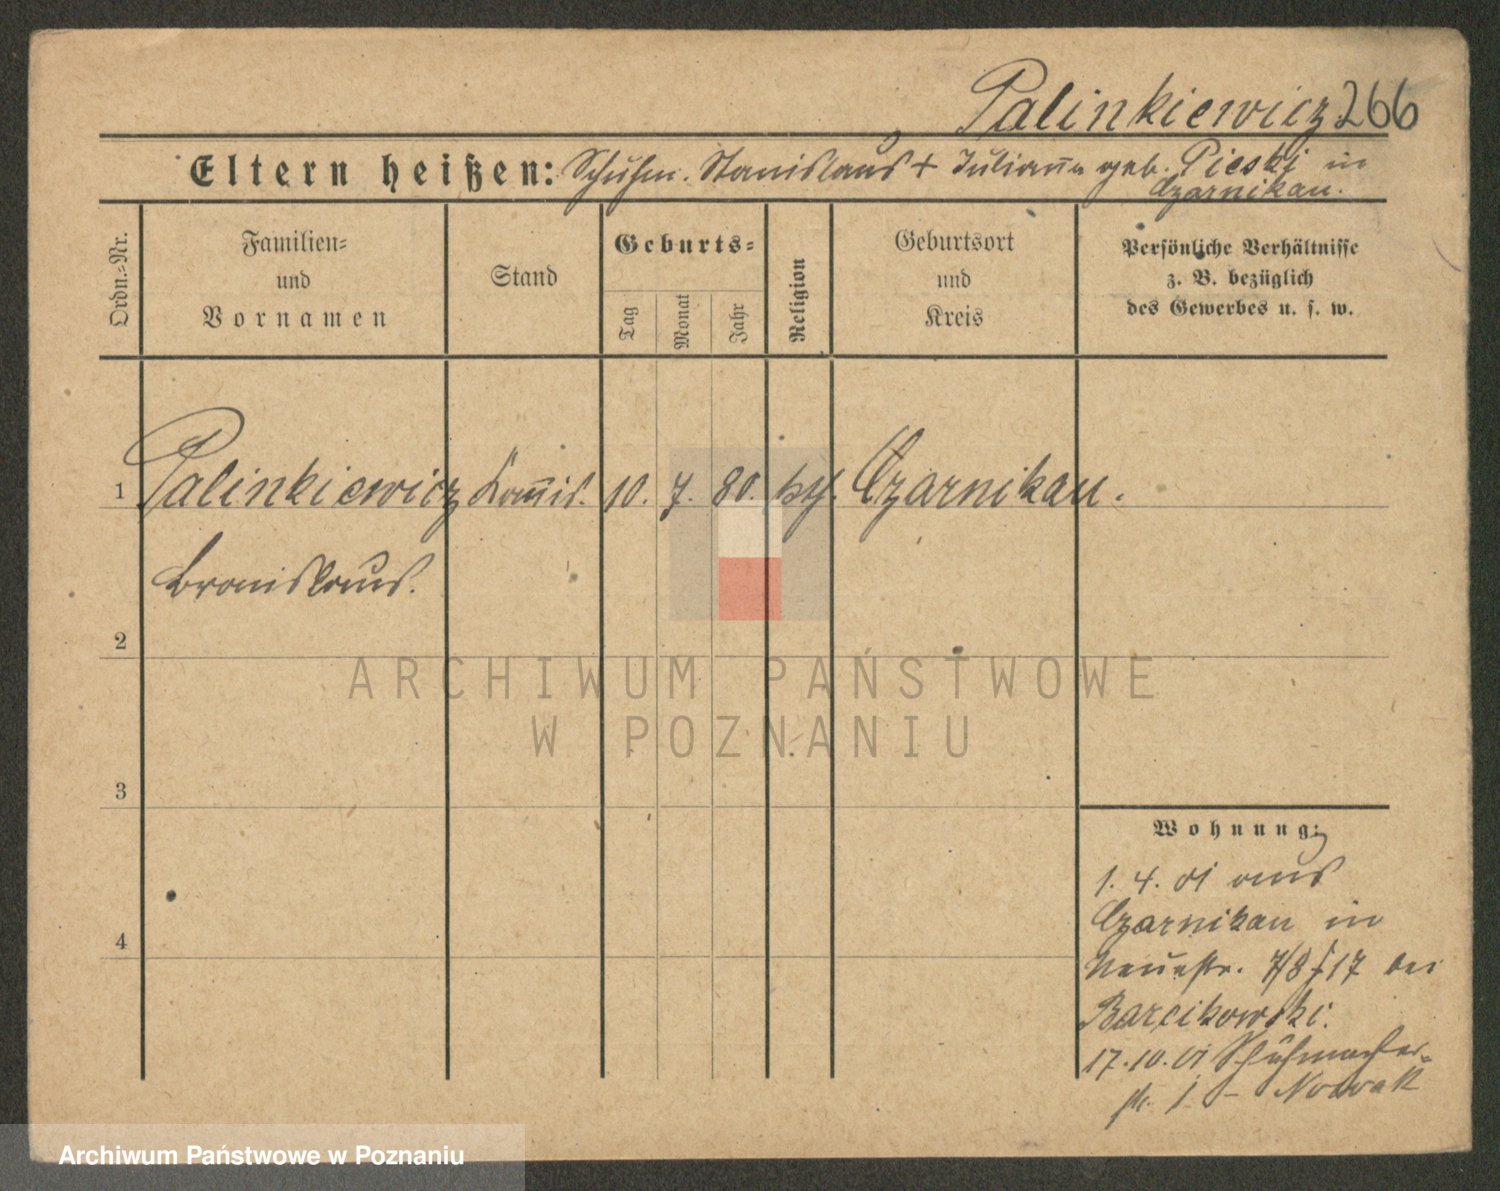 Palinkiewicz 266
Eltern heißen: Schuhm. Stanislaus + Julianna geb. Pieski in
Czarnikau.
Ordn.-Nr.
Familien-
und
Vornamen
Stand
Geburts-
Tag
Monat
Jahr
Religion
Geburtsort
und
Kreis
Persönliche Verhältnisse
z. B. bezüglich
des Gewerbes u. s. w.
1 Palinkiewicz Kommis. 10. 7. 80. kth. Czarnikau.
Bronislaus.
2
3
4
Wohnung:
1. 4. 01 aus
Czarnikau in
Neuestr. 7/8 17 bei
Barcikowski.
17.10.01 Schuhmacher-
str. 1 - Nowak
ARCHIWUM PAŃSTWOWE
W POZNANIU
Archiwum Państwowe w Poznaniu